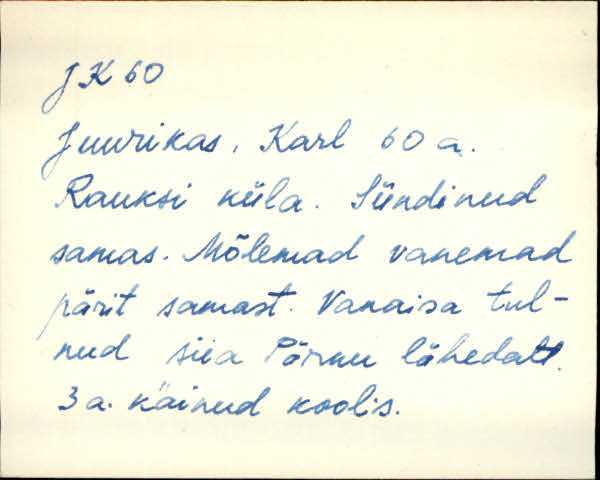 JK 60
Juurikas, Karl 60 a.
Rauksi küla. Sündinud
samas. Mõlemad vanemad
pärit samast. Vanaisa tul-
nud siia Pärnu lähedalt.
3 a. käinud koolis.